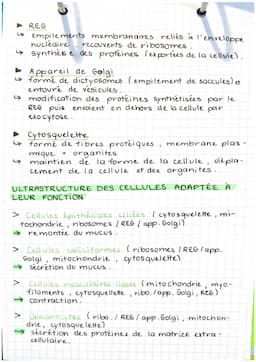 ▸ REG
↳ empilements membranaires reliés à l'enveloppe
nucléaire, recouverts de ribosomes.
↳ synthèse des protéines (exportées de la cellule).
▸ Appareil de Golgi
↳ formé de dictyosomes (empilement de saccules) et
entouré de vésicules.
↳ modification des protéines synthétisées par le
REG puis envoient en dehors de la cellule par
exocytose.
▸ Cytosquelette
↳ formé de fibres protéiques, membrane plas-
mique + organites
↳ maintien de la forme de la cellule, dépla-
cement de la cellule et des organites.
ULTRASTRUCTURE DES CELLULES ADAPTÉE À
LEUR FONCTION
> Cellules épithéliales ciliées (cytosquelette, mi-
tochondrie, ribosomes / REG / app. Golgi)
→ remontée du mucus.
> Cellules caliciformes (ribosomes / REG / app.
Golgi, mitochondrie, cytosquelette)
→ Sécrétion du mucus.
> Cellules musculaires lisses (mitochondrie, myo-
filaments, cytosquelette, ribo. / app. Golgi, REG)
→ contraction.
> (ribo. / REG / app. Golgi, mitochon-
drie, cytosquelette)
→ sécrétion des protéines de la matrice extra-
cellulaire.